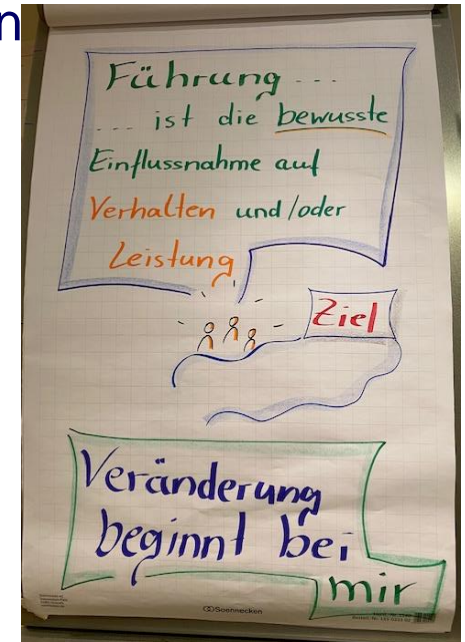 n
Führung ...
... ist die bewusste
Einflussnahme auf
Verhalten und/oder
Leistung
Ziel
Veränderung
beginnt bei
mir
Soennecken